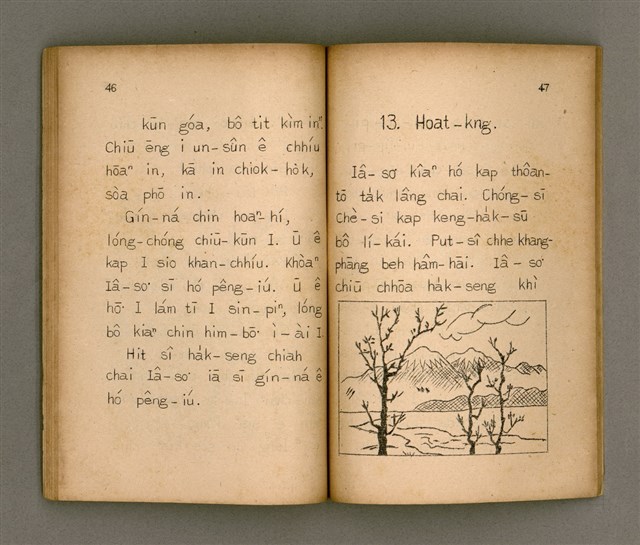 46
kūn góa, bô tit kìm inⁿ.
Chiū ēng i un-sûn ê chhíu
hōaⁿ in, kā in chiok-hòk,
sòa phō in.
Gín-ná chin hoaⁿ-hí,
lóng-chóng chiū-kūn I. Ū ê
kap I sio khan-chhíu. Khòaⁿ
Iâ-so͘ sī hó pêng-iú. Ū ê
hō͘ I lám tī I sin-piⁿ, lóng
bô kiaⁿ chin him-bō͘ ì-ài I.
Hit sî ha̍k-seng chiah
chai Iâ-so͘ iā sī gín-ná ê
hó pêng-iú.
47
13. Hoat-kng.
Iâ-so͘ kîaⁿ hó kap thôan-
tō ta̍k lâng chai. Chóng-sī
Chè-si kap keng-ha̍k-sū
bô lí-kái. Put-sî chhe khang-
phāng beh hâm-hāi. Iâ-so͘
chiū chhōa ha̍k-seng khì